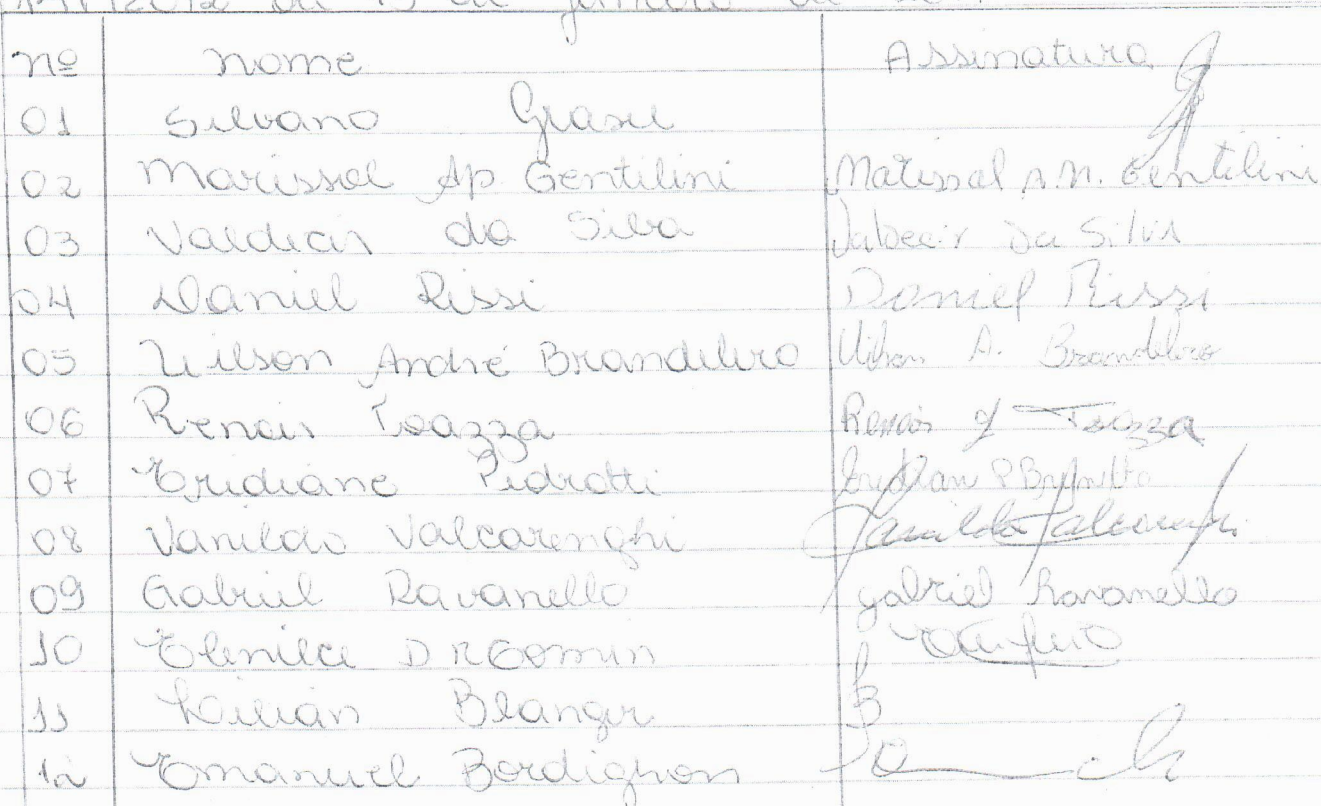 de janeiro de
nº nome Assinatura
01 Silvano
02 Marissol Ap. Gentilini Marissol A.M. Gentilini
03 Valdecir da Silva Valdecir Da Silva
04 Daniel Rissi Daniel Rissi
05 Uilson André Brandelero Uilson A. Brandelero
06 Renair Toazza Renair Toazza
07 Eridiane Pedrotti
08 Vanildo Valcarenghi Vanildo Valcarenghi
09 Gabriel Ravanello gabriel Ravanello
10 Elenice
11 Lilian Blanger
12 Emanuel Bordignon